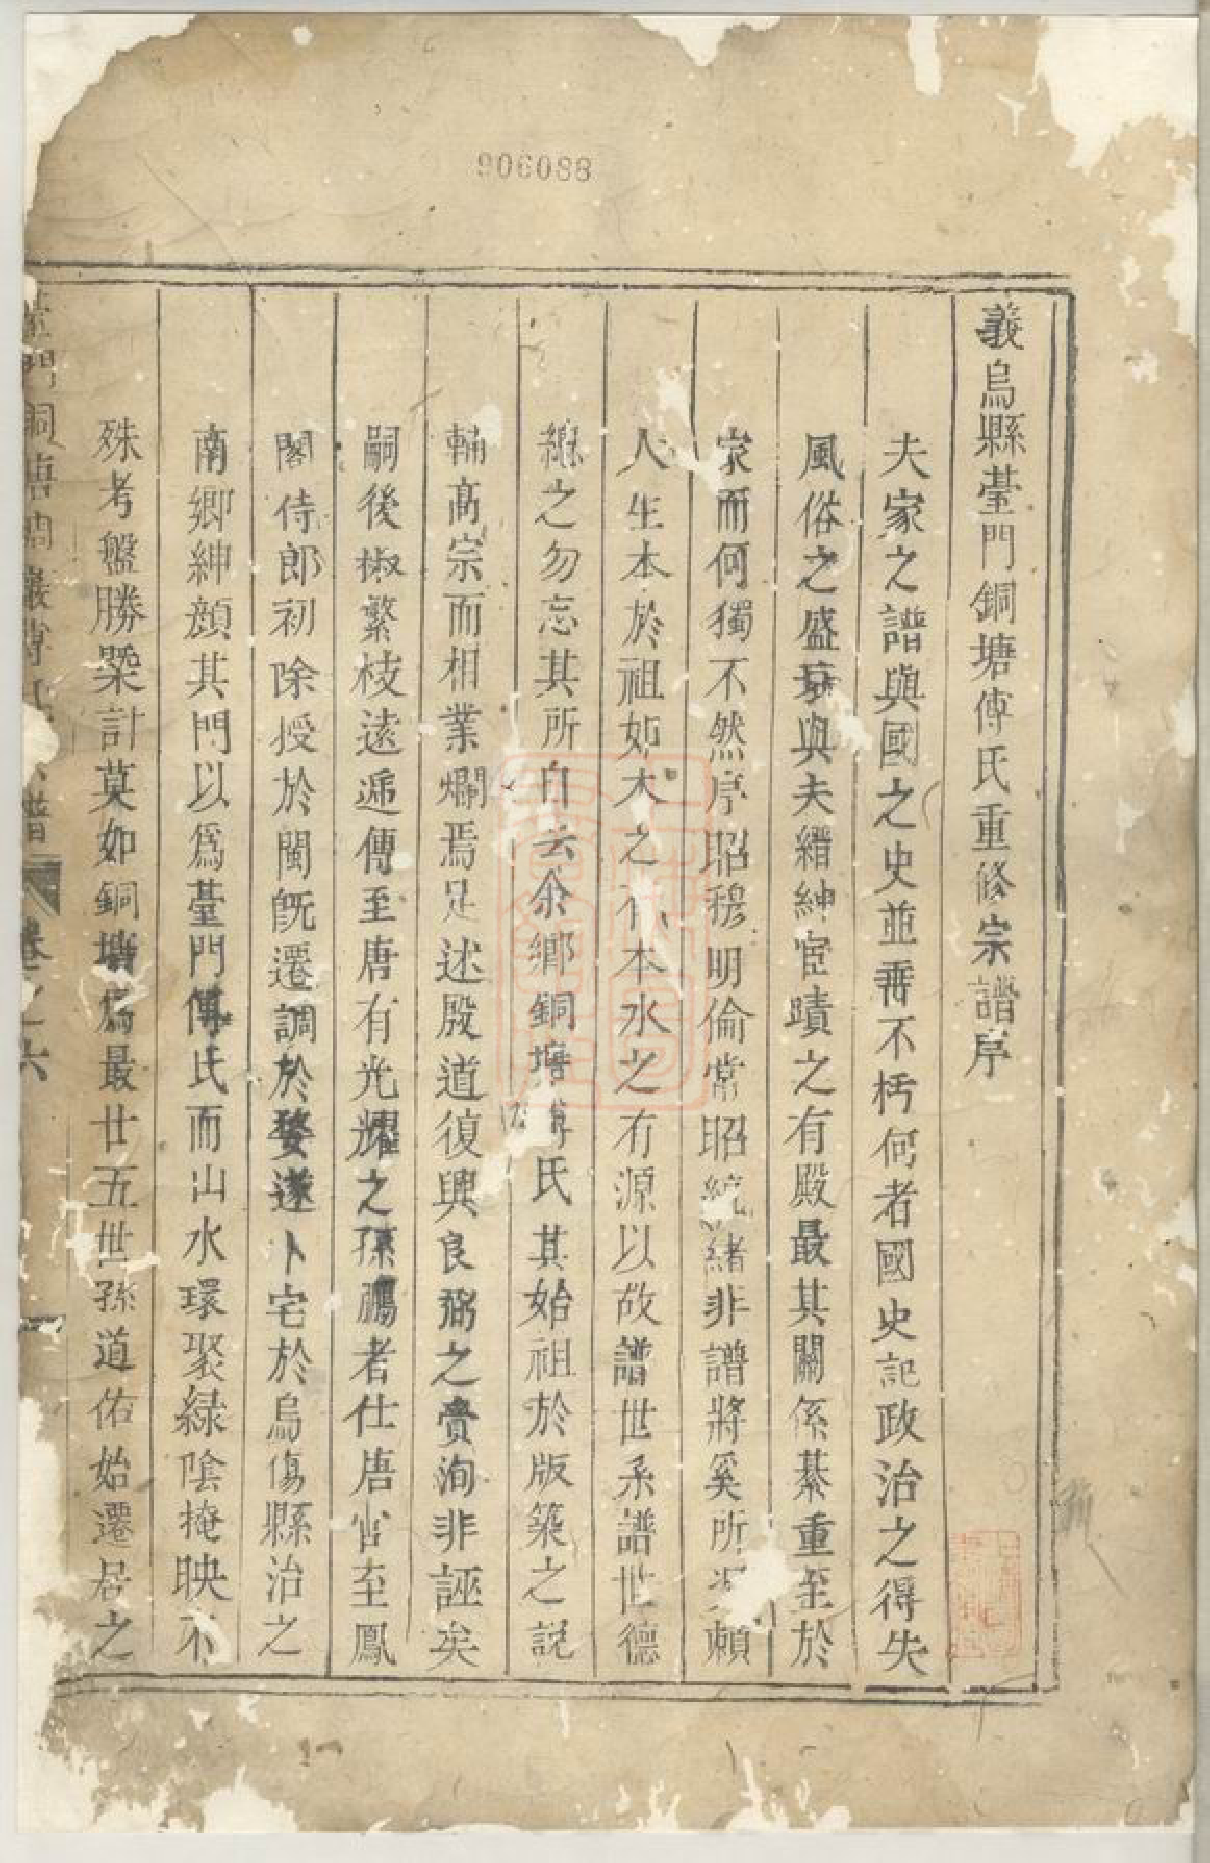 906088
義烏縣臺門銅塘傅氏重修宗譜序
夫家之譜與國之史並垂不朽何者國史記政治之得失
風俗之盛衰與夫縉紳宦蹟之有殿最其關係綦重至於
家而何獨不然序昭穆明倫常昭統緒非譜將奚所賴
人生本於祖如木之有本水之有源以故譜世系譜世德
繩之勿忘其所自云余鄉銅塘傅氏其始祖於版築之說
輔高宗而相業爛焉足述殷道復興良弼之賚洵非誣矣
嗣後椒繁枝遠遞傳至唐有光耀之孫鵬者仕唐官至鳳
閣侍郎初除授於閩旣遷調於婺遂卜宅於烏傷縣治之
南鄉紳顏其門以爲臺門傅氏而山水環聚綠陰掩映不
殊考盤勝槩計莫如銅塘爲最廿五世孫道佑始遷居之
臺門銅塘 傅氏宗譜 卷之六